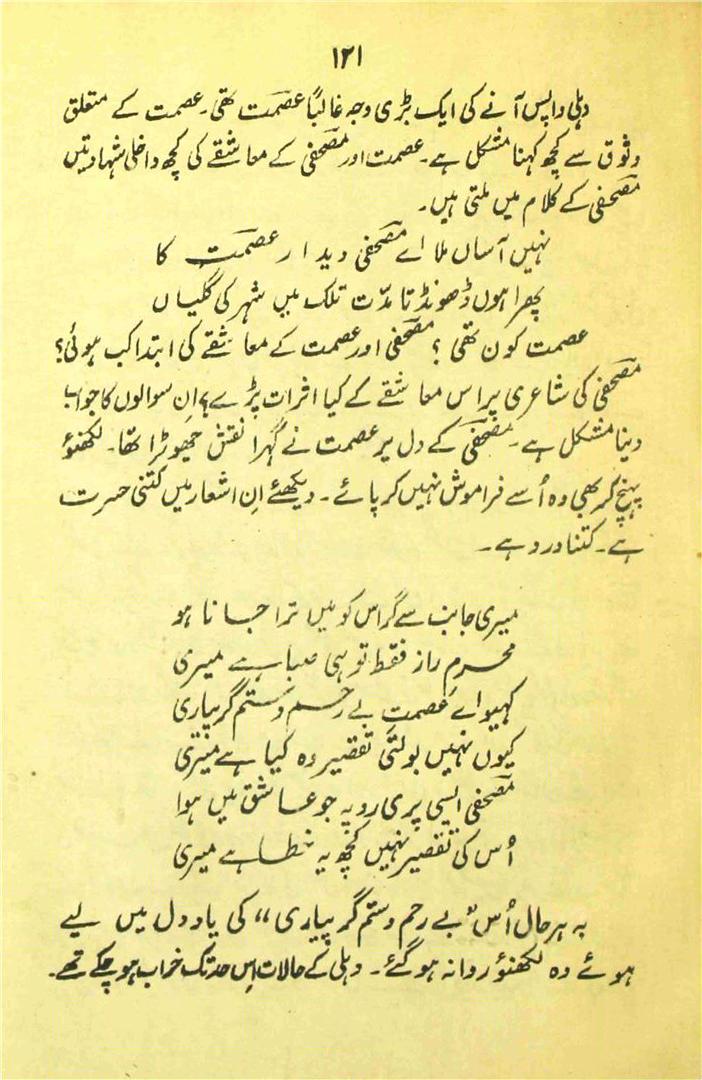 ۱۲۱
دہلی واپس آنے کی ایک بڑی وجہ غالباً عصمت تھی۔ عصمت کے متعلق
وثوق سے کچھ کہنا مشکل ہے۔ عصمت اور مصحفی کے معاشقے کی کچھ داخلی شہادتیں
مصحفی کے کلام میں ملتی ہیں۔
نہیں آساں ملا اے مصحفی دیدار عصمت کا
پھرا ہوں ڈھونڈتا مدّت تلک میں شہر کی گلیاں
عصمت کون تھی؟ مصحفی اور عصمت کے معاشقے کی ابتدا کب ہوئی؟
مصحفی کی شاعری پر اس معاشقے کے کیا اثرات پڑے؟ اِن سوالوں کا جواب
دینا مشکل ہے۔ مصحفی کے دل پر عصمت نے گہرا نقش چھوڑا تھا۔ لکھنؤ
پہنچ کر بھی وہ اُسے فراموش نہیں کر پائے۔ دیکھئے اِن اشعار میں کتنی حسرت
ہے۔ کتنا درد ہے۔
میری جانب سے گر اس کو میں ترا جانا ہو
محرمِ راز فقط تو ہی صبا ہے میری
کہیو اے عصمتِ بے رحم و ستم گر پیاری
کیوں نہیں بولتی تقصیر وہ کیا ہے میری
مصحفی ایسی پری رو پہ جو عاشق میں ہوا
اُس کی تقصیر نہیں کچھ یہ خطا ہے میری
بہ ہر حال اُس "بے رحم و ستم گر پیاری" کی یاد دل میں لیے
ہوئے وہ لکھنؤ روانہ ہو گئے۔ دہلی کے حالات اِس حد تک خراب ہو چکے تھے۔